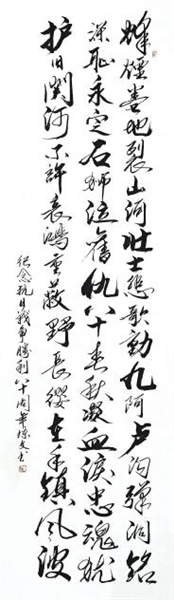 烽煙卷地裂山河壮士悲歌動九阿卢沟弹洞铭
深耻永定石狮泣舊仇八十春秋凝血淚忠魂犹
护旧関沙不許哀鴻重蔽野長缨在手镇風波
纪念抗日戰争勝利八十周年 文书